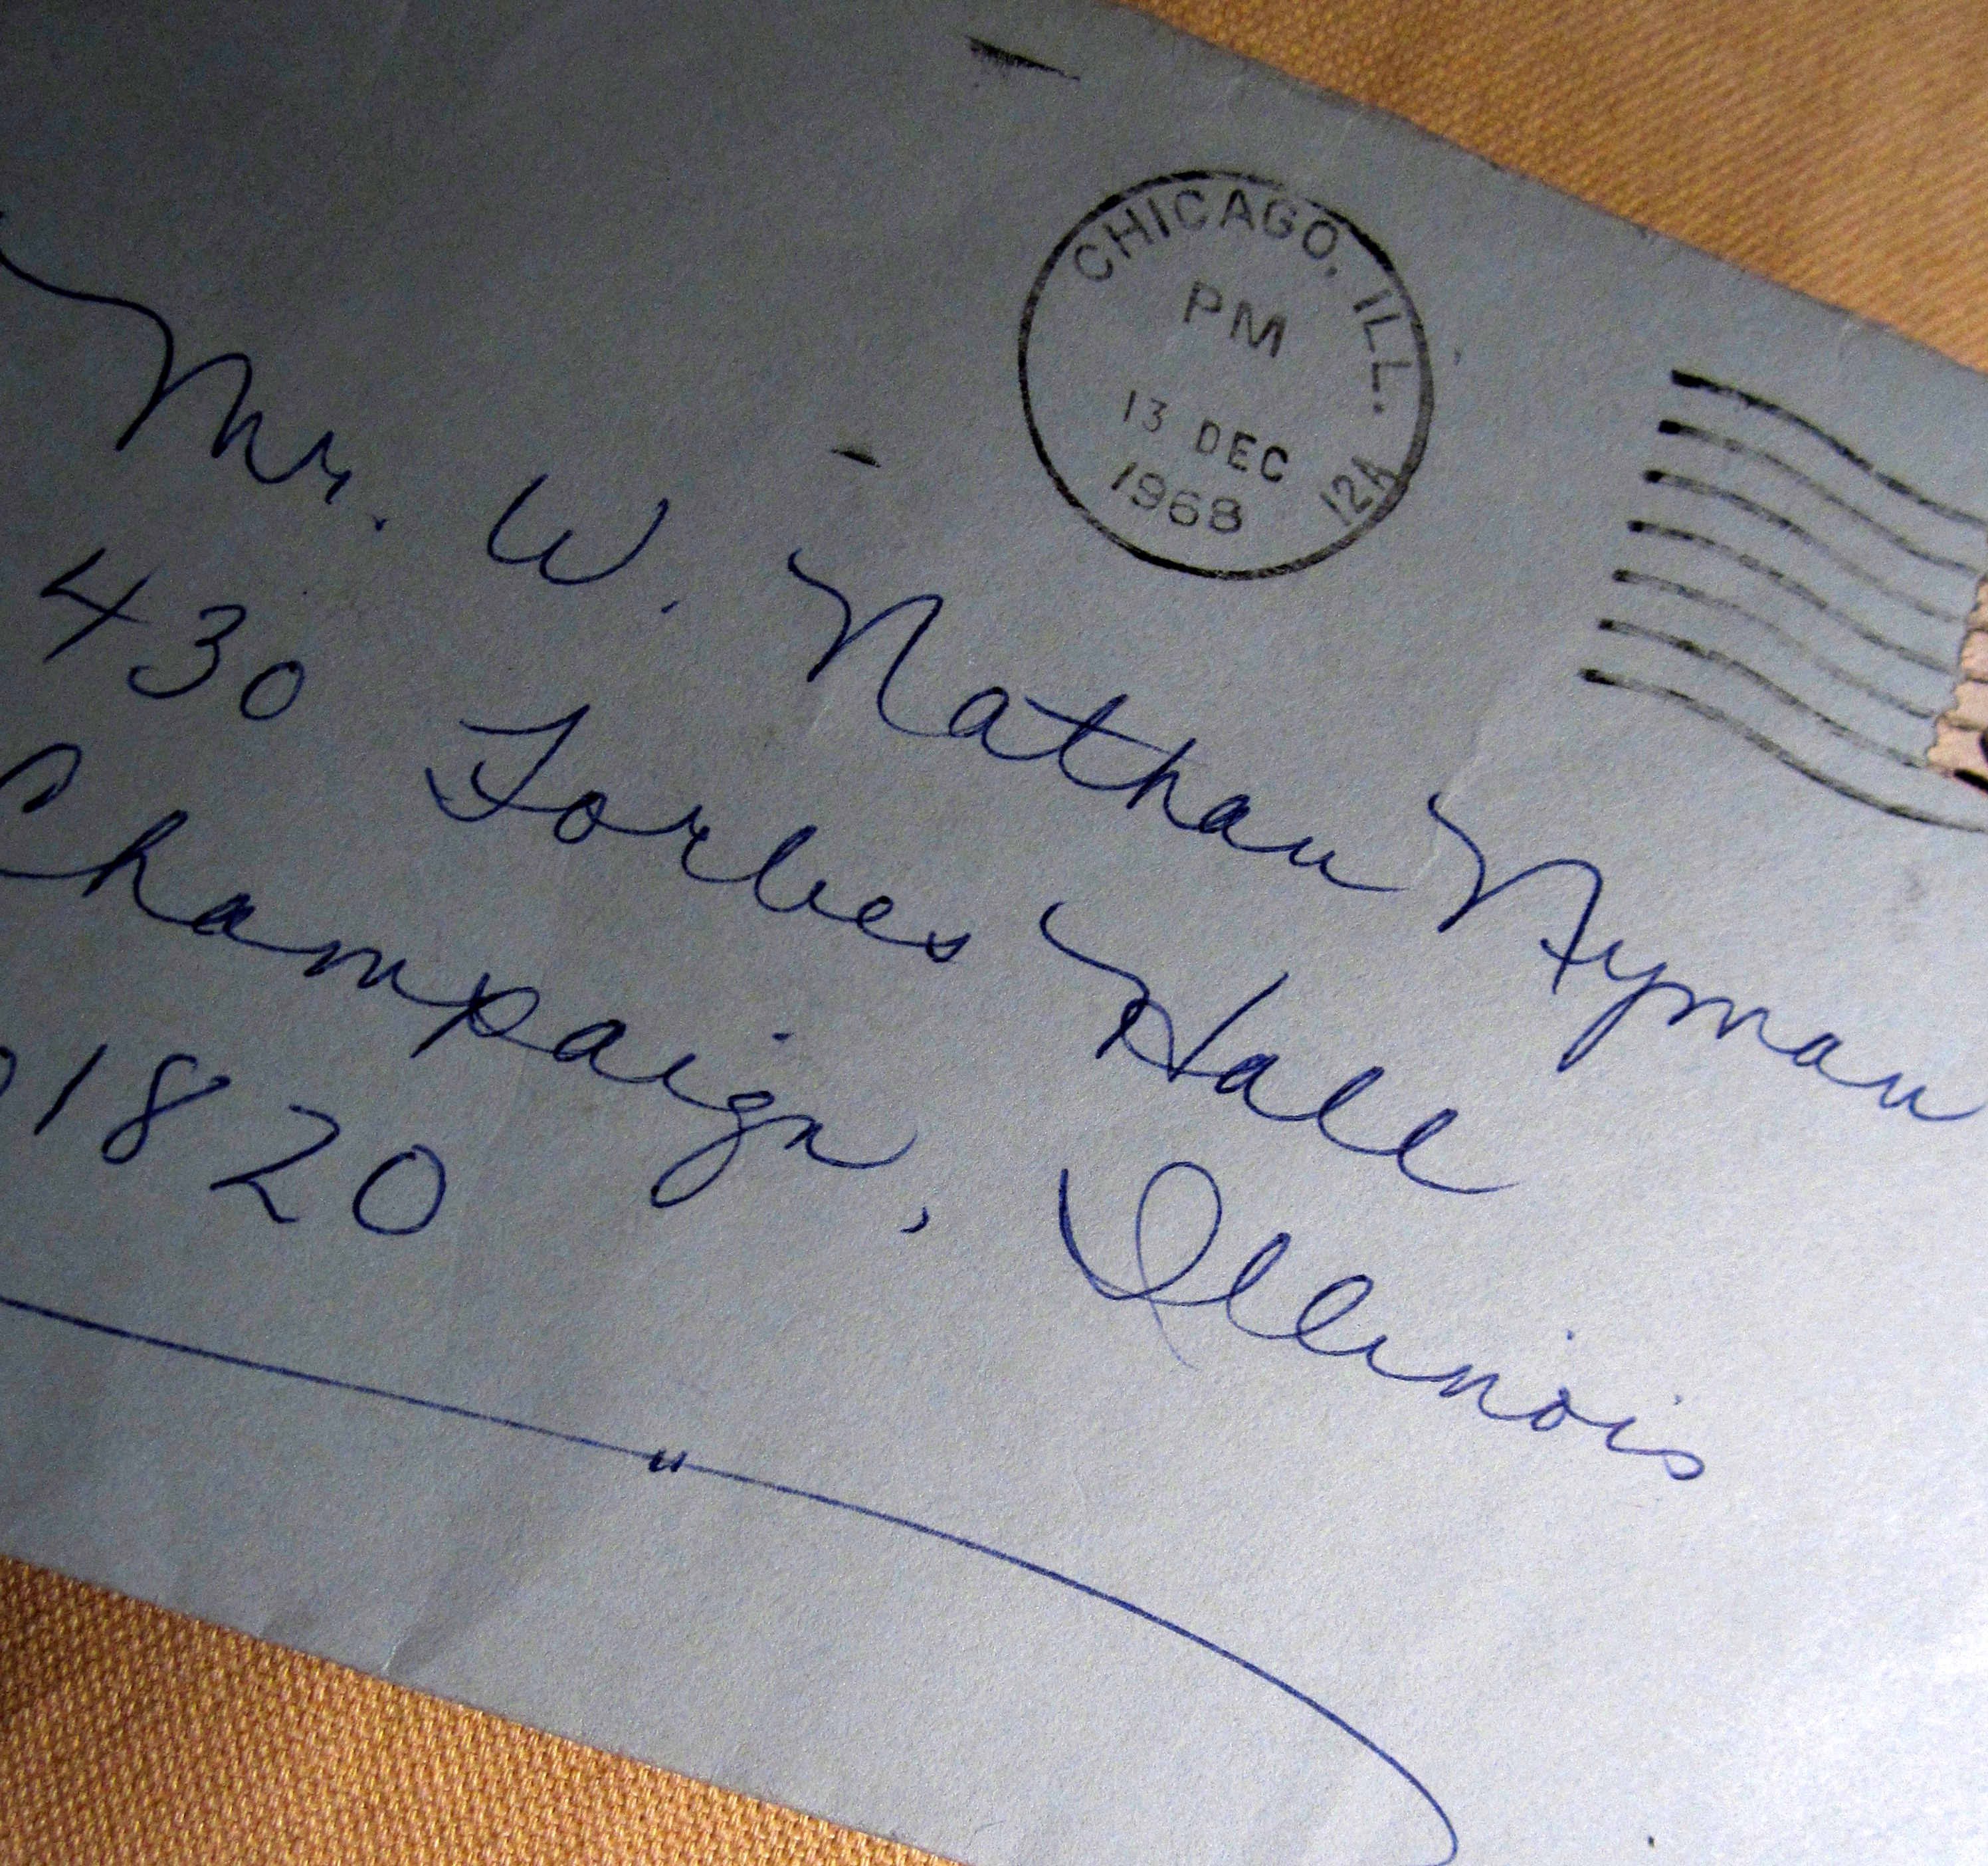 CHICAGO, ILL.
PM
13 DEC
1968
12A
Mr. W. Nathan Nyman
430 Forbes Hall
Champaign, Illinois
1820